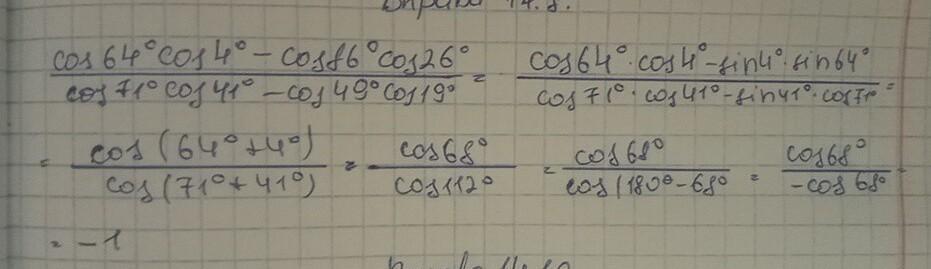 Вправа 14.8.
cos64° cos4° - cos86° cos26° / cos71° cos41° - cos49° cos19° = cos64° · cos4° - sin4° · sin64° / cos71° · cos41° - sin41° · cos71° =
= cos(64° + 4°) / cos(71° + 41°) = cos68° / cos112° = cos68° / cos(180° - 68° = cos68° / -cos68° =
= -1